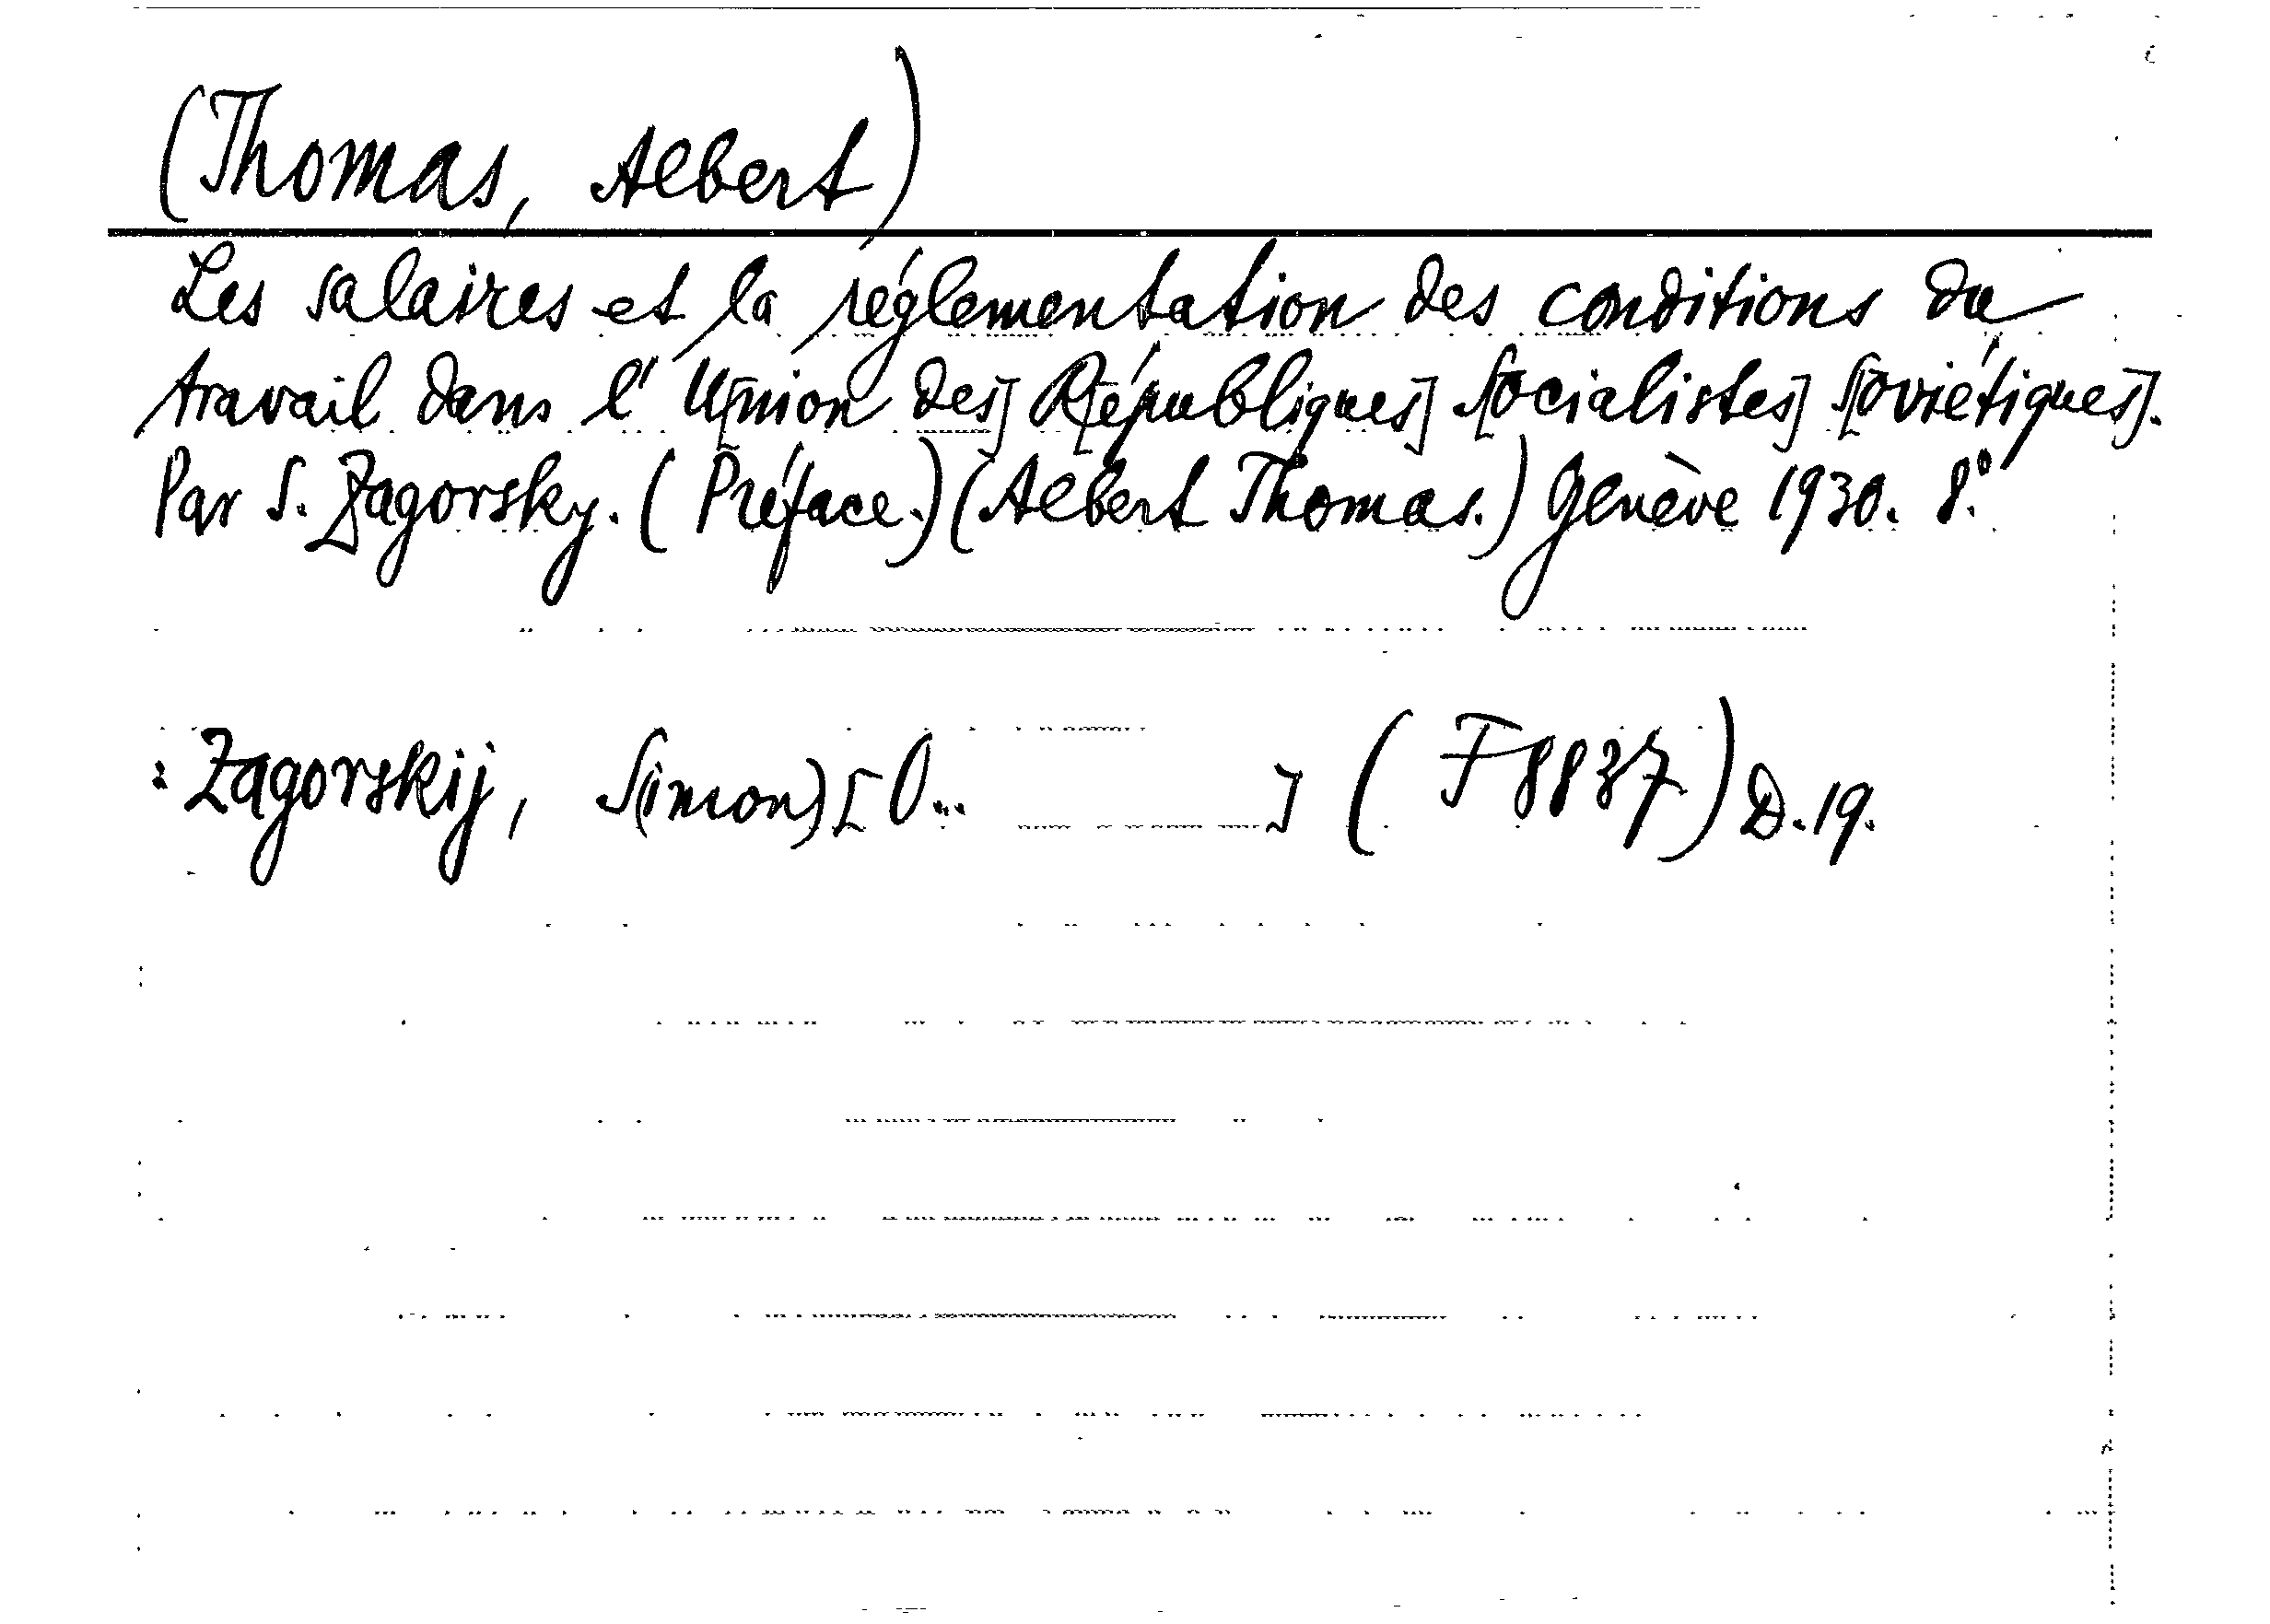 (Thomas, Albert)
Les salaires et la réglementation des conditions du
travail dans l'U[nion des] R[épubliques] S[ocialistes] S[oviétiques].
Par S. Zagorsky. (Préface.) (Albert Thomas.) Genève 1930. 8°.
: Zagorskij, S(imon) [O... ] (F 8837) D. 19.